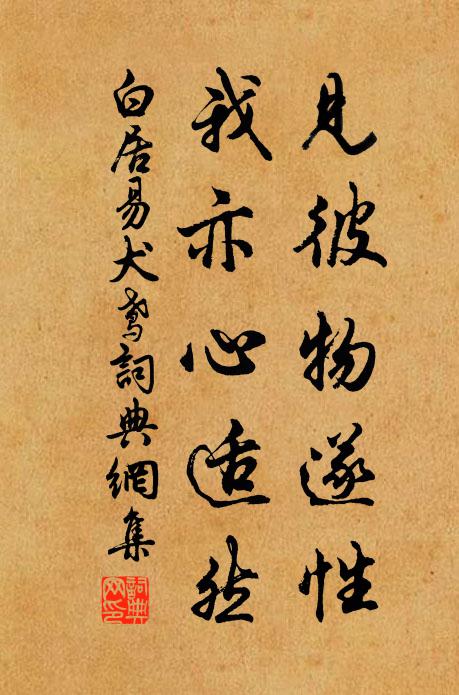 見彼物遂性
我亦心适然
白居易犬鸢詞典網集
詞典网印